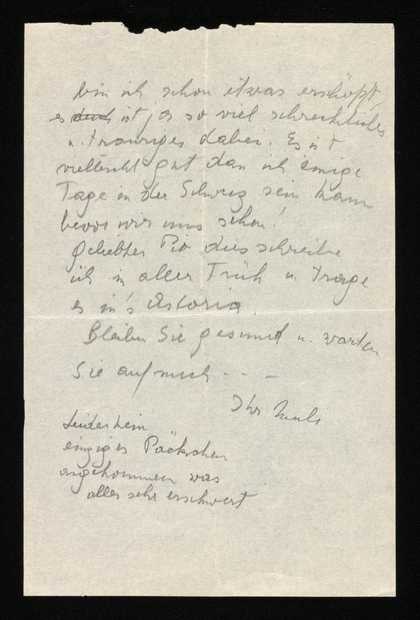 bin ich schon etwas erschöpft,
es ist ja so viel schreckliches
u. trauriges dabei. Es ist
vielleicht gut dan ich einige
Tage in der Schweiz sein kann
bevor wir uns sehen!
Geliebter dies schreibe
ich in aller Früh u. trage
es in's Astoria.
Bleiben Sie gesund u. warten
Sie auf mich - - -
Ihr
Leider kein
einziges Päckchen
angekommen was
alles sehr erschwert